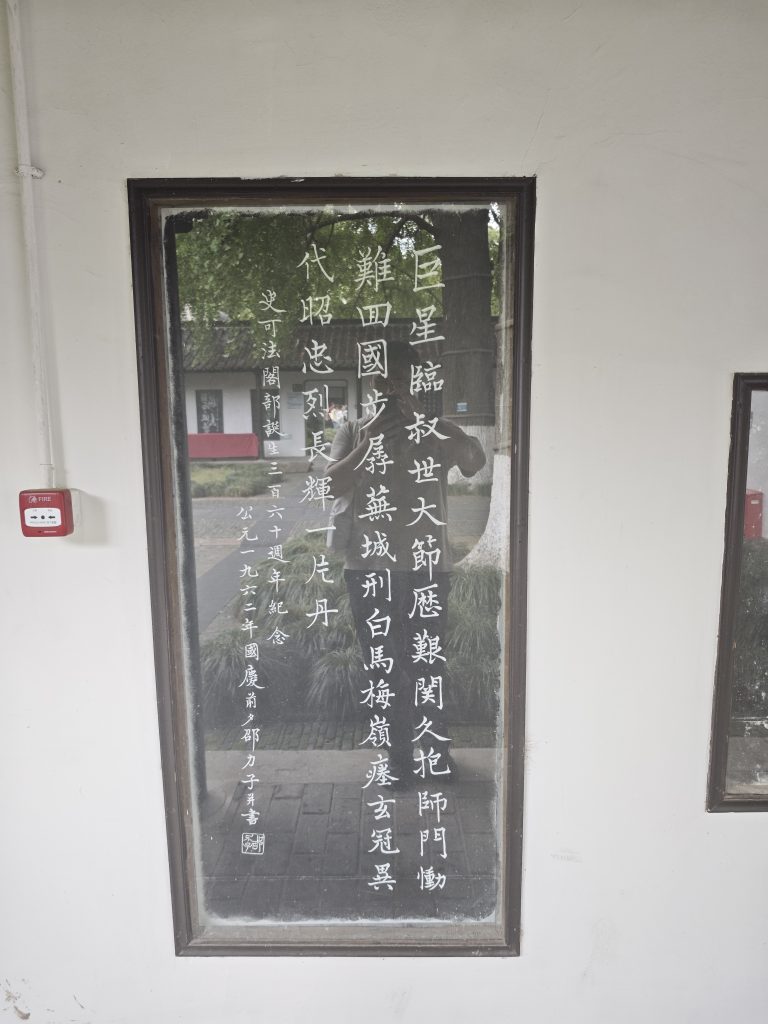 巨星臨叔世大節歷艱関久抱師門慟
難回國步孱蕪城刑白馬梅嶺瘗玄冠異
代昭忠烈長輝一片丹
史可法閣部誕生三百六十週年紀念
公元一九六二年國慶前夕邵力子并書
FIRE